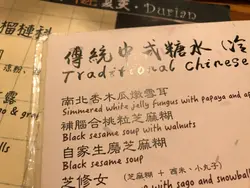 Durian
榴槤科
傳統中式糖水 (冷
Traditional Chinese
南北杏木瓜燉雪耳
Simmered white jelly fungus with papaya and ap
補腦合桃粒芝麻糊
Black sesame soup with walnuts
自家生磨芝麻糊
Black sesame soup
芝修女 (芝麻糊 + 西米、小丸子)
with sago and snowball